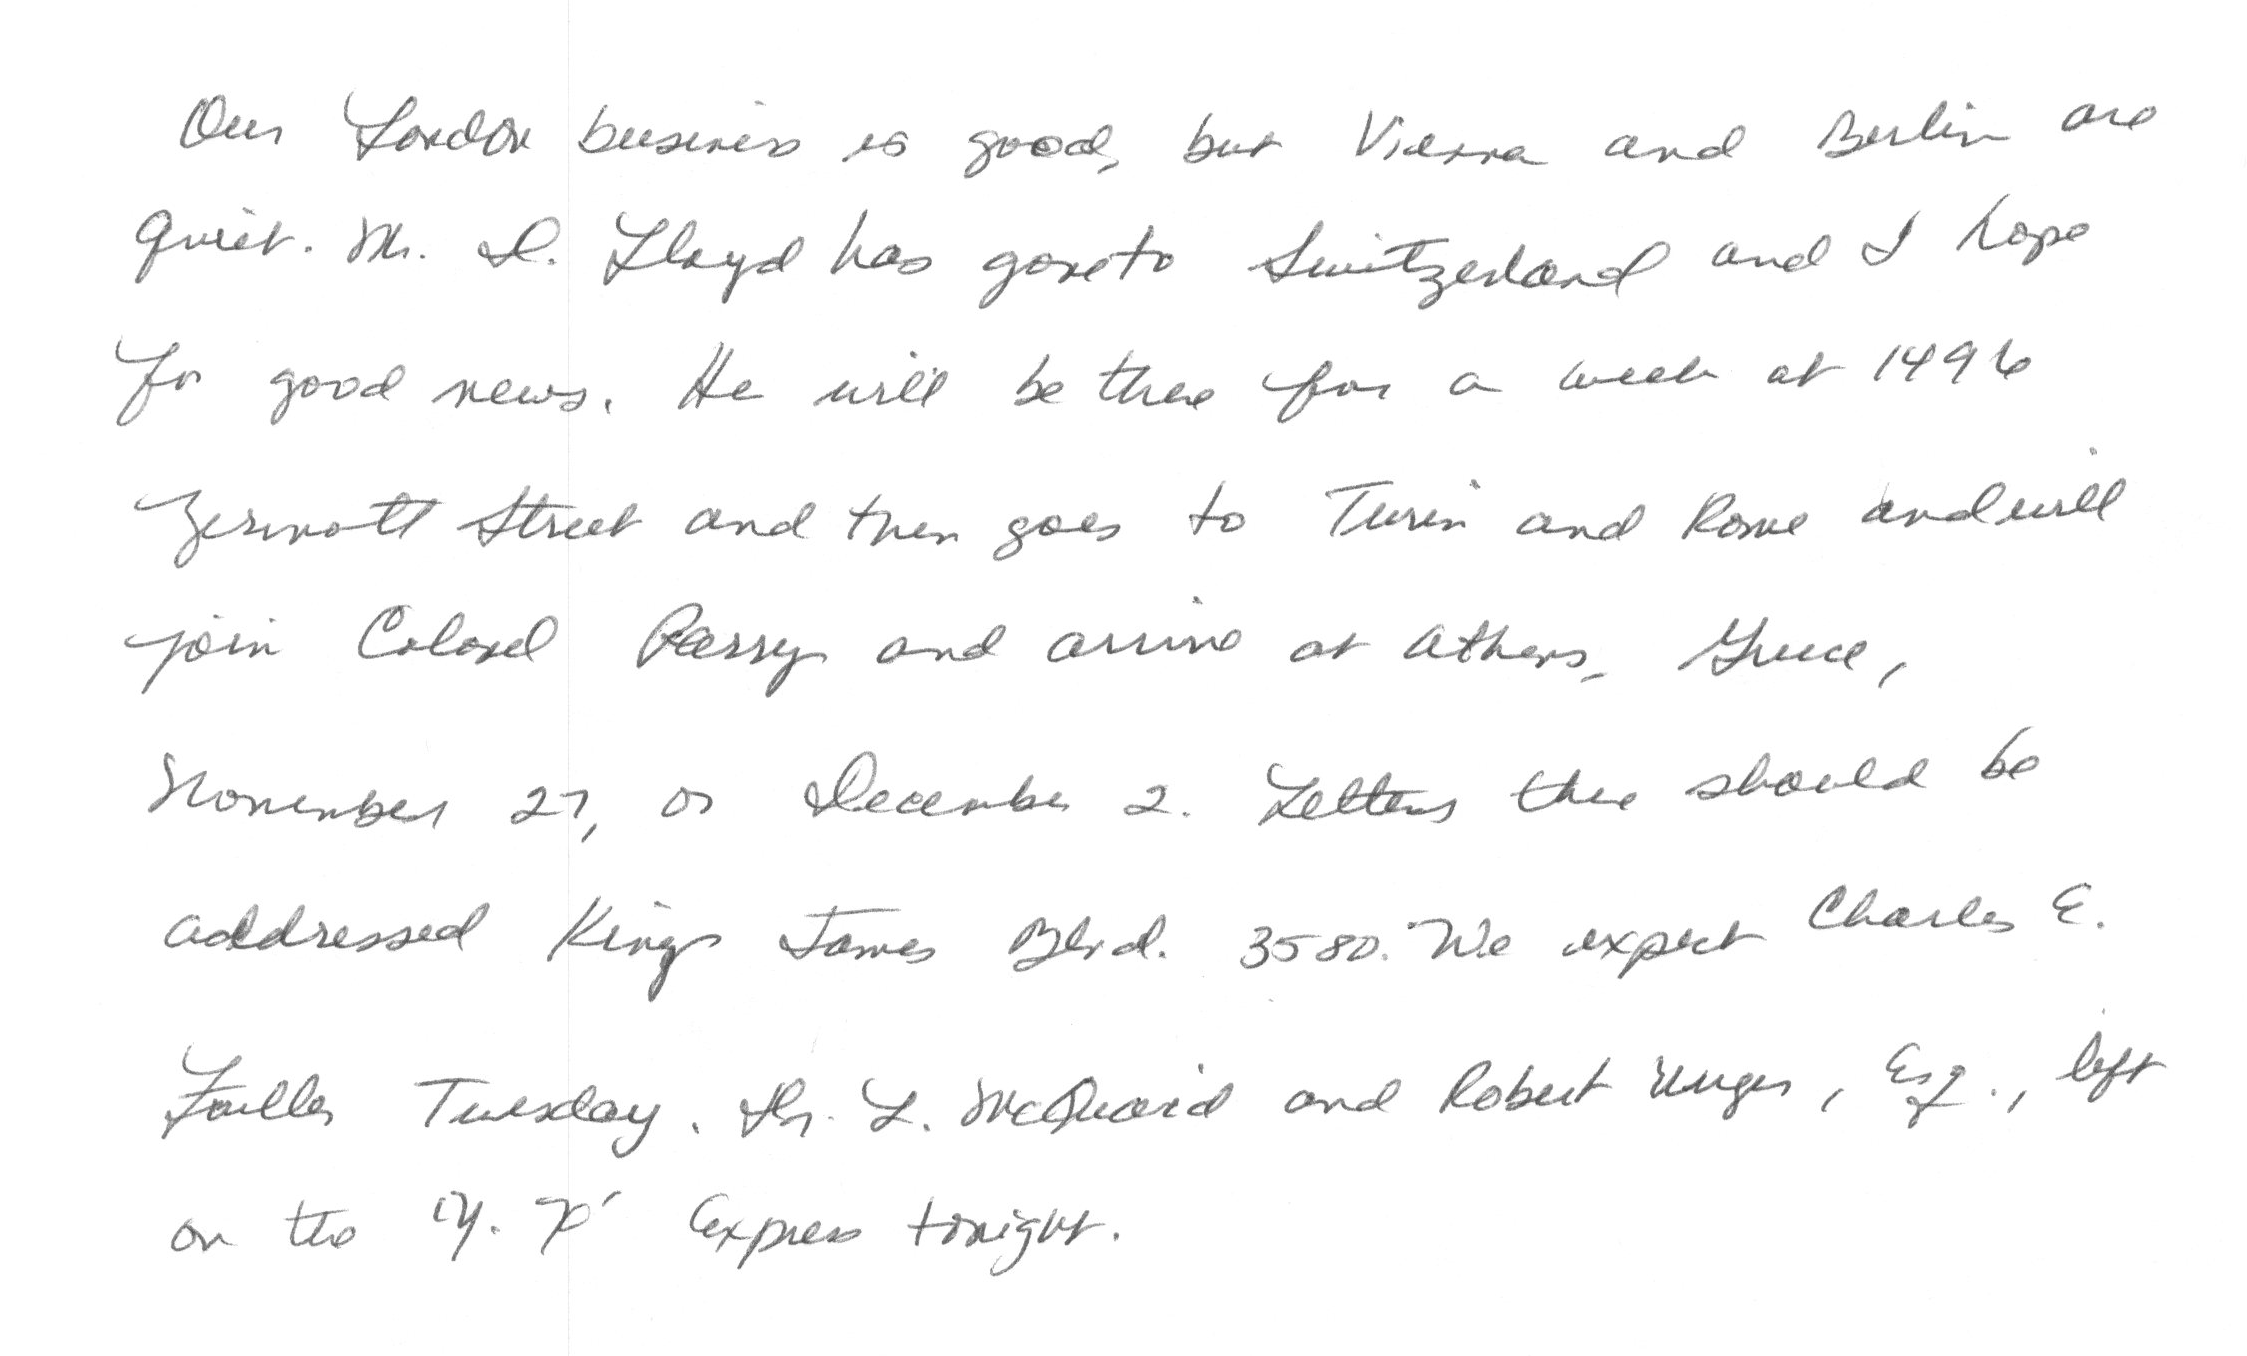 Our London business is good, but Vienna and Berlin are
quiet. Mr. D. Lloyd has gone to Switzerland and I hope
for good news. He will be there for a week at 1496
Zermott Street and then goes to Turin and Rome and will
join Colonel Parry and arrive at Athens, Greece,
November 27, or December 2. Letters there should be
addressed King James Blvd. 3580. We expect Charles E.
Fuller Tuesday. Dr. L. McQuaid and Robert Unger, Esq., left
on the 'Y. X' Express tonight.